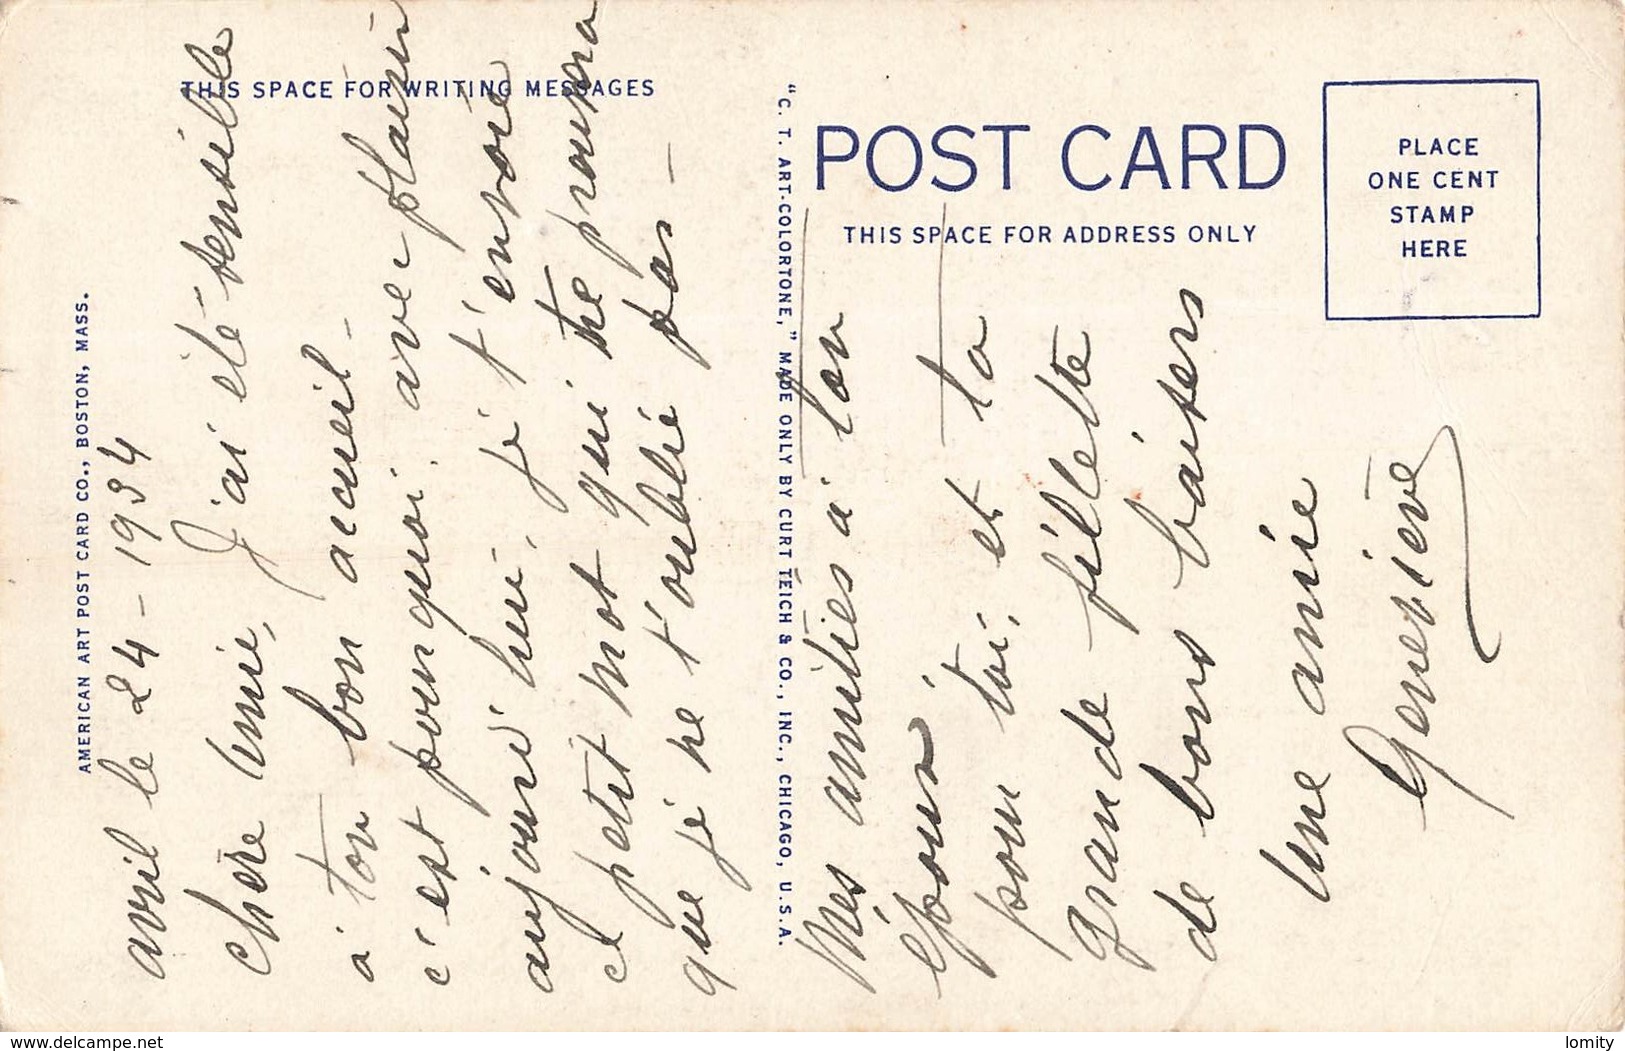 THIS SPACE FOR WRITING MESSAGES
AMERICAN ART POST CARD CO., BOSTON, MASS.
avril le 24-1934
chère amie,
J'ai été sensible
à ton bon accueil -
c'est pourquoi avec plaisir
aujourd'hui, je t'envoie
ce petit mot qui te prouvera
que je ne t'oublie pas -
"C. T. ART-COLORTONE," MADE ONLY BY CURT TEICH & CO., INC., CHICAGO, U.S.A.
POST CARD
THIS SPACE FOR ADDRESS ONLY
PLACE
ONE CENT
STAMP
HERE
Mes amitiés à ton
époux,
pour toi, et ta
grande fillette
de bons baisers
Une amie
Geneviève
www.delcampe.net
lomity